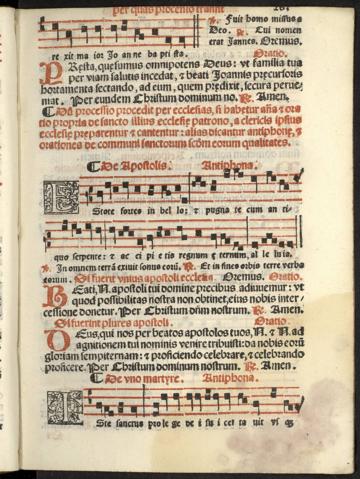 per quas processio transit
℣. Fuit homo missus a
Deo. ℟. Cui nomen
erat Joannes. Oremus.
re xit ma ior Jo an ne ba pti sta. Oratio.
PResta, quesumus omnipotens Deus: vt familia tua
per viam salutis incedat, et beati Joannis precursoris
hortamenta sectando, ad eum, quem predixit, secura perue-
niat. Per eundem Christum dominum no. ℟. Amen.
¶ Dū processio procedit per ecclesias, si habetur aña et ora
tio propria de sancto illius ecclesie patrono, a clericis ipsius
ecclesie preparentur et cantentur: alias dicantur antiphone, et
orationes de communi sanctorum scdm eorum qualitates.
¶ De Apostolis. Antiphona.
EStote fortes in bel lo: et pugna te cum an ti-
quo serpente: et ac ci pi e tis regnum eternum, al le luia.
℣. In omnem terrā exiuit sonus eorū. ℟. Et in fines orbis terre verba
eorum. Si fuerit vnius apostoli ecclesia. Oremus. Oratio.
BEati, N. apostoli tui domine precibus adiuuemur: vt
quod possibilitas nostra non obtinet, eius nobis inter-
cessione donetur. Per Christum dñm nostrum. ℟. Amen.
Si fuerint plures apostoli. Oratio.
DEus, qui nos per beatos apostolos tuos, N. et N. ad
agnitionem tui nominis venire tribuisti: da nobis eorū
gloriam sempiternam: et proficiendo celebrare, et celebrando
proficere. Per Christum dominum nostrum. ℟. Amen.
¶ De vno martyre. Antiphona.
ISte sanctus pro le ge de i su i cer ta uit vsq